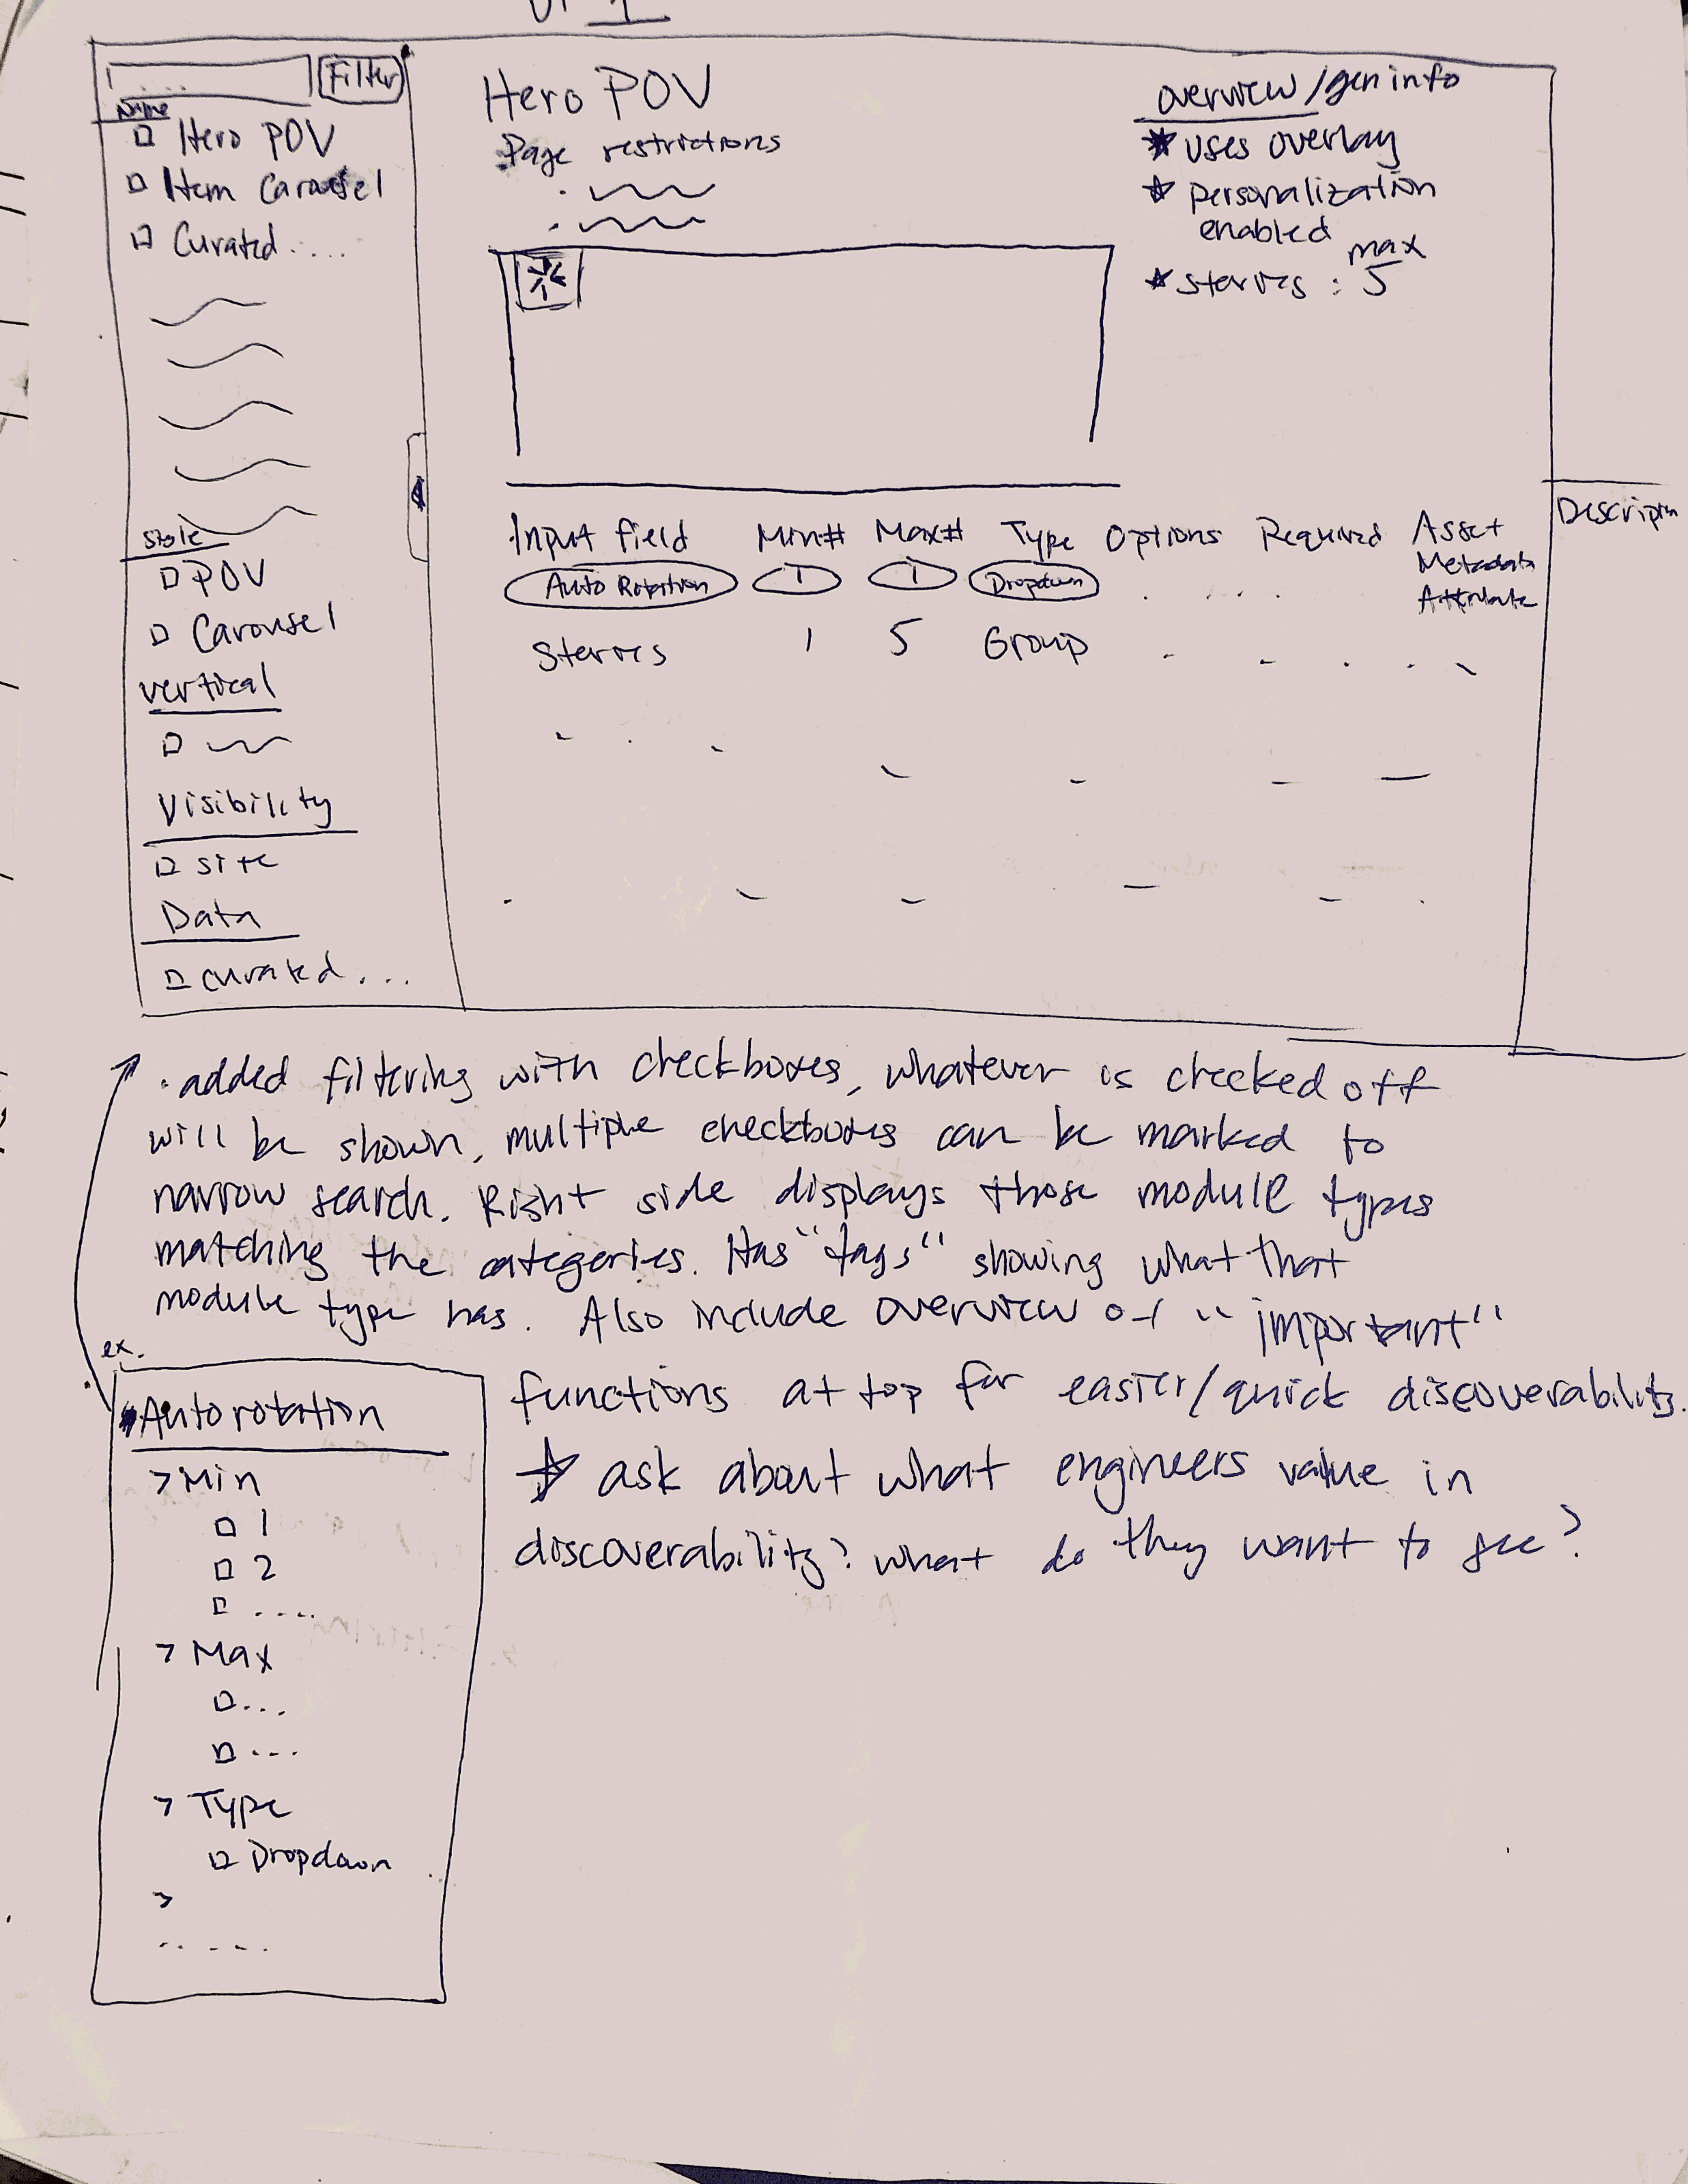 V. 1
Filter
Name
Hero POV
Item Carousel
Curated.....
Style
POV
Carousel
vertical
Visibility
site
Data
curated...
Hero POV
Page restrictions
overview/gen info
uses overlay
personalization
enabled
max
stories : 5
Input field Min# Max# Type Options Required Asset
Metadata
Attribute
Descriptn
Auto Rotation 1 1 Dropdown
Stories 1 5 Group
· added filtering with checkboxes, whatever is checked off
will be shown, multiple checkboxes can be marked to
narrow search. Right side displays those module types
matching the categories. Has "tags" showing what that
module type has. Also include overview of "important"
functions at top for easier/quick discoverability.
☆ ask about what engineers value in
discoverability? what do they want to see?
ex.
Autorotation
> Min
1
2
.....
> Max
...
...
> Type
Dropdown
>
.....